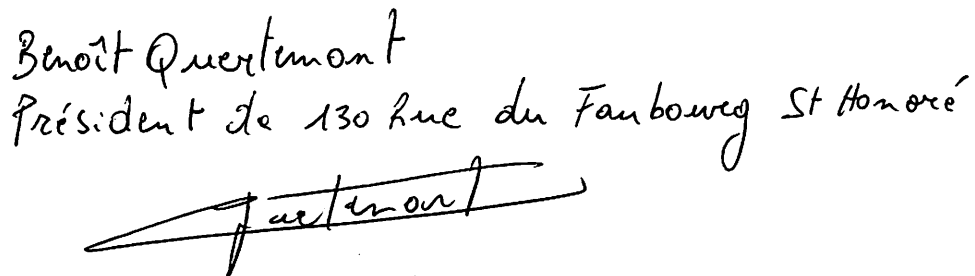 Benoît Quertemont
Président de 130 Rue du Faubourg St Honoré
Quertemont